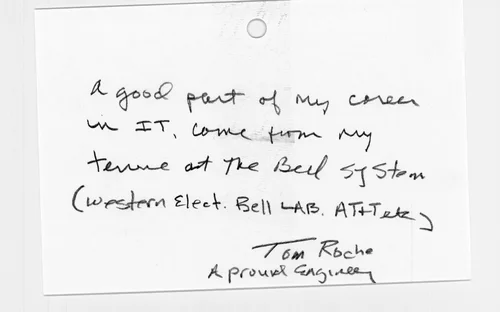 A good part of my career
in IT, came from my
tenure at the Bell System
(Western Elect. Bell LAB. AT&T etc)
Tom Roche
A proud Engineer